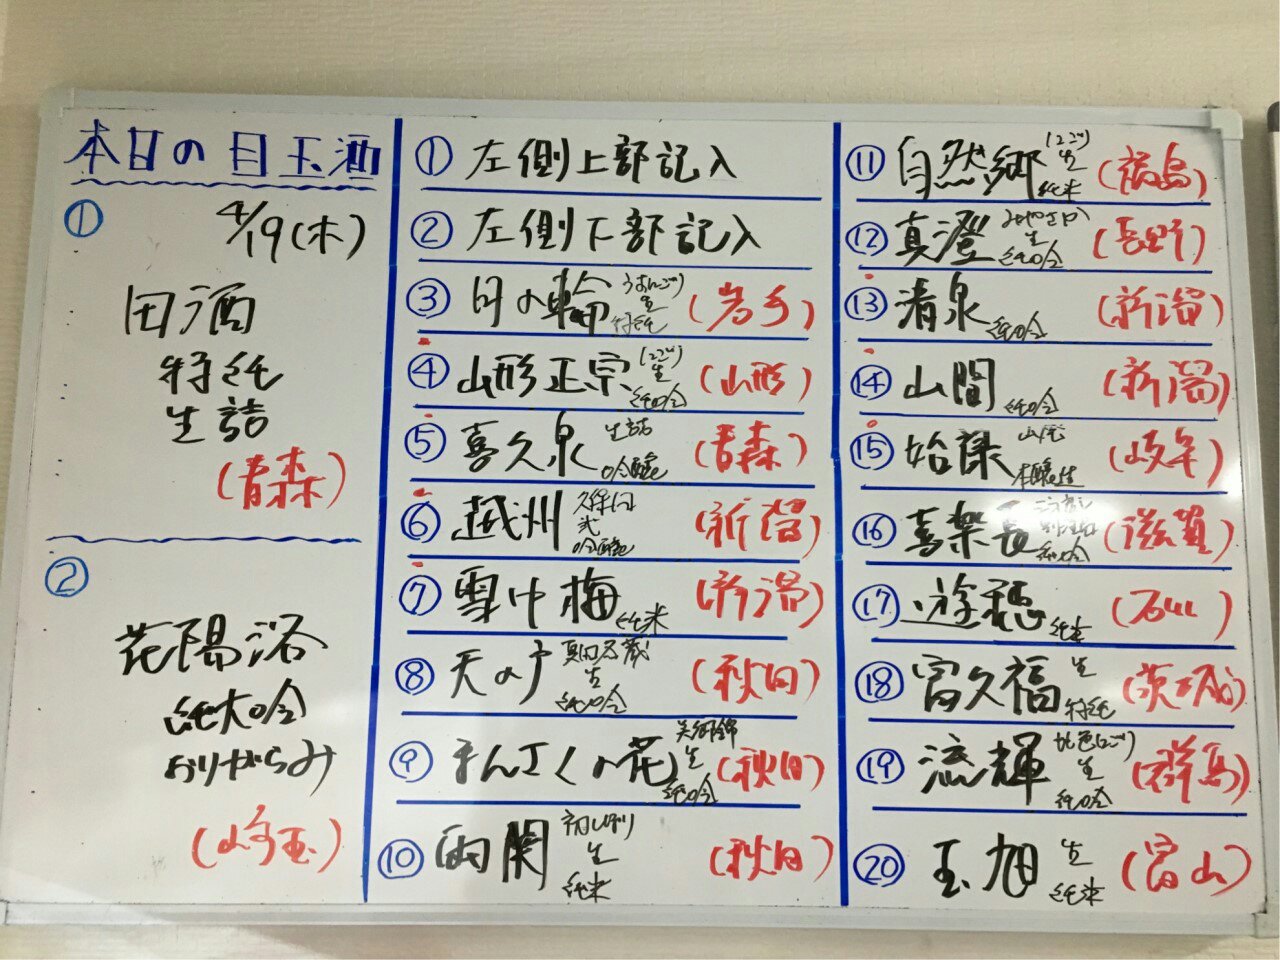 本日の目玉酒
4/19(木)
①
田酒
特純
生詰
(青森)
②
花陽浴
純大吟
おりがらみ
(埼玉)
① 左側上部記入
② 左側下部記入
③ 月の輪 うすにごり 生 特純 (岩手)
④ 山形正宗 にごり 生 純吟 (山形)
⑤ 喜久泉 生詰 吟醸 (青森)
⑥ 越州 吟醸 (新潟)
⑦ 雪中梅 純米 (新潟)
⑧ 天の戸 生 純吟 (秋田)
⑨ まんさくの花 美郷錦 生 純吟 (秋田)
⑩ 両関 初しぼり 生 純米 (秋田)
⑪ 自然郷 にごり 生 純米 (福島)
⑫ 真澄 生 純吟 (長野)
⑬ 清泉 純吟 (新潟)
⑭ 山間 純吟 (新潟)
⑮ 始禄 本醸生 (岐阜)
⑯ 喜楽長 純吟 (滋賀)
⑰ 遊穂 純米 (石川)
⑱ 富久福 生 特純 (茨城)
⑲ 流輝 桃色にごり 生 純吟 (群馬)
⑳ 玉旭 生 純米 (富山)